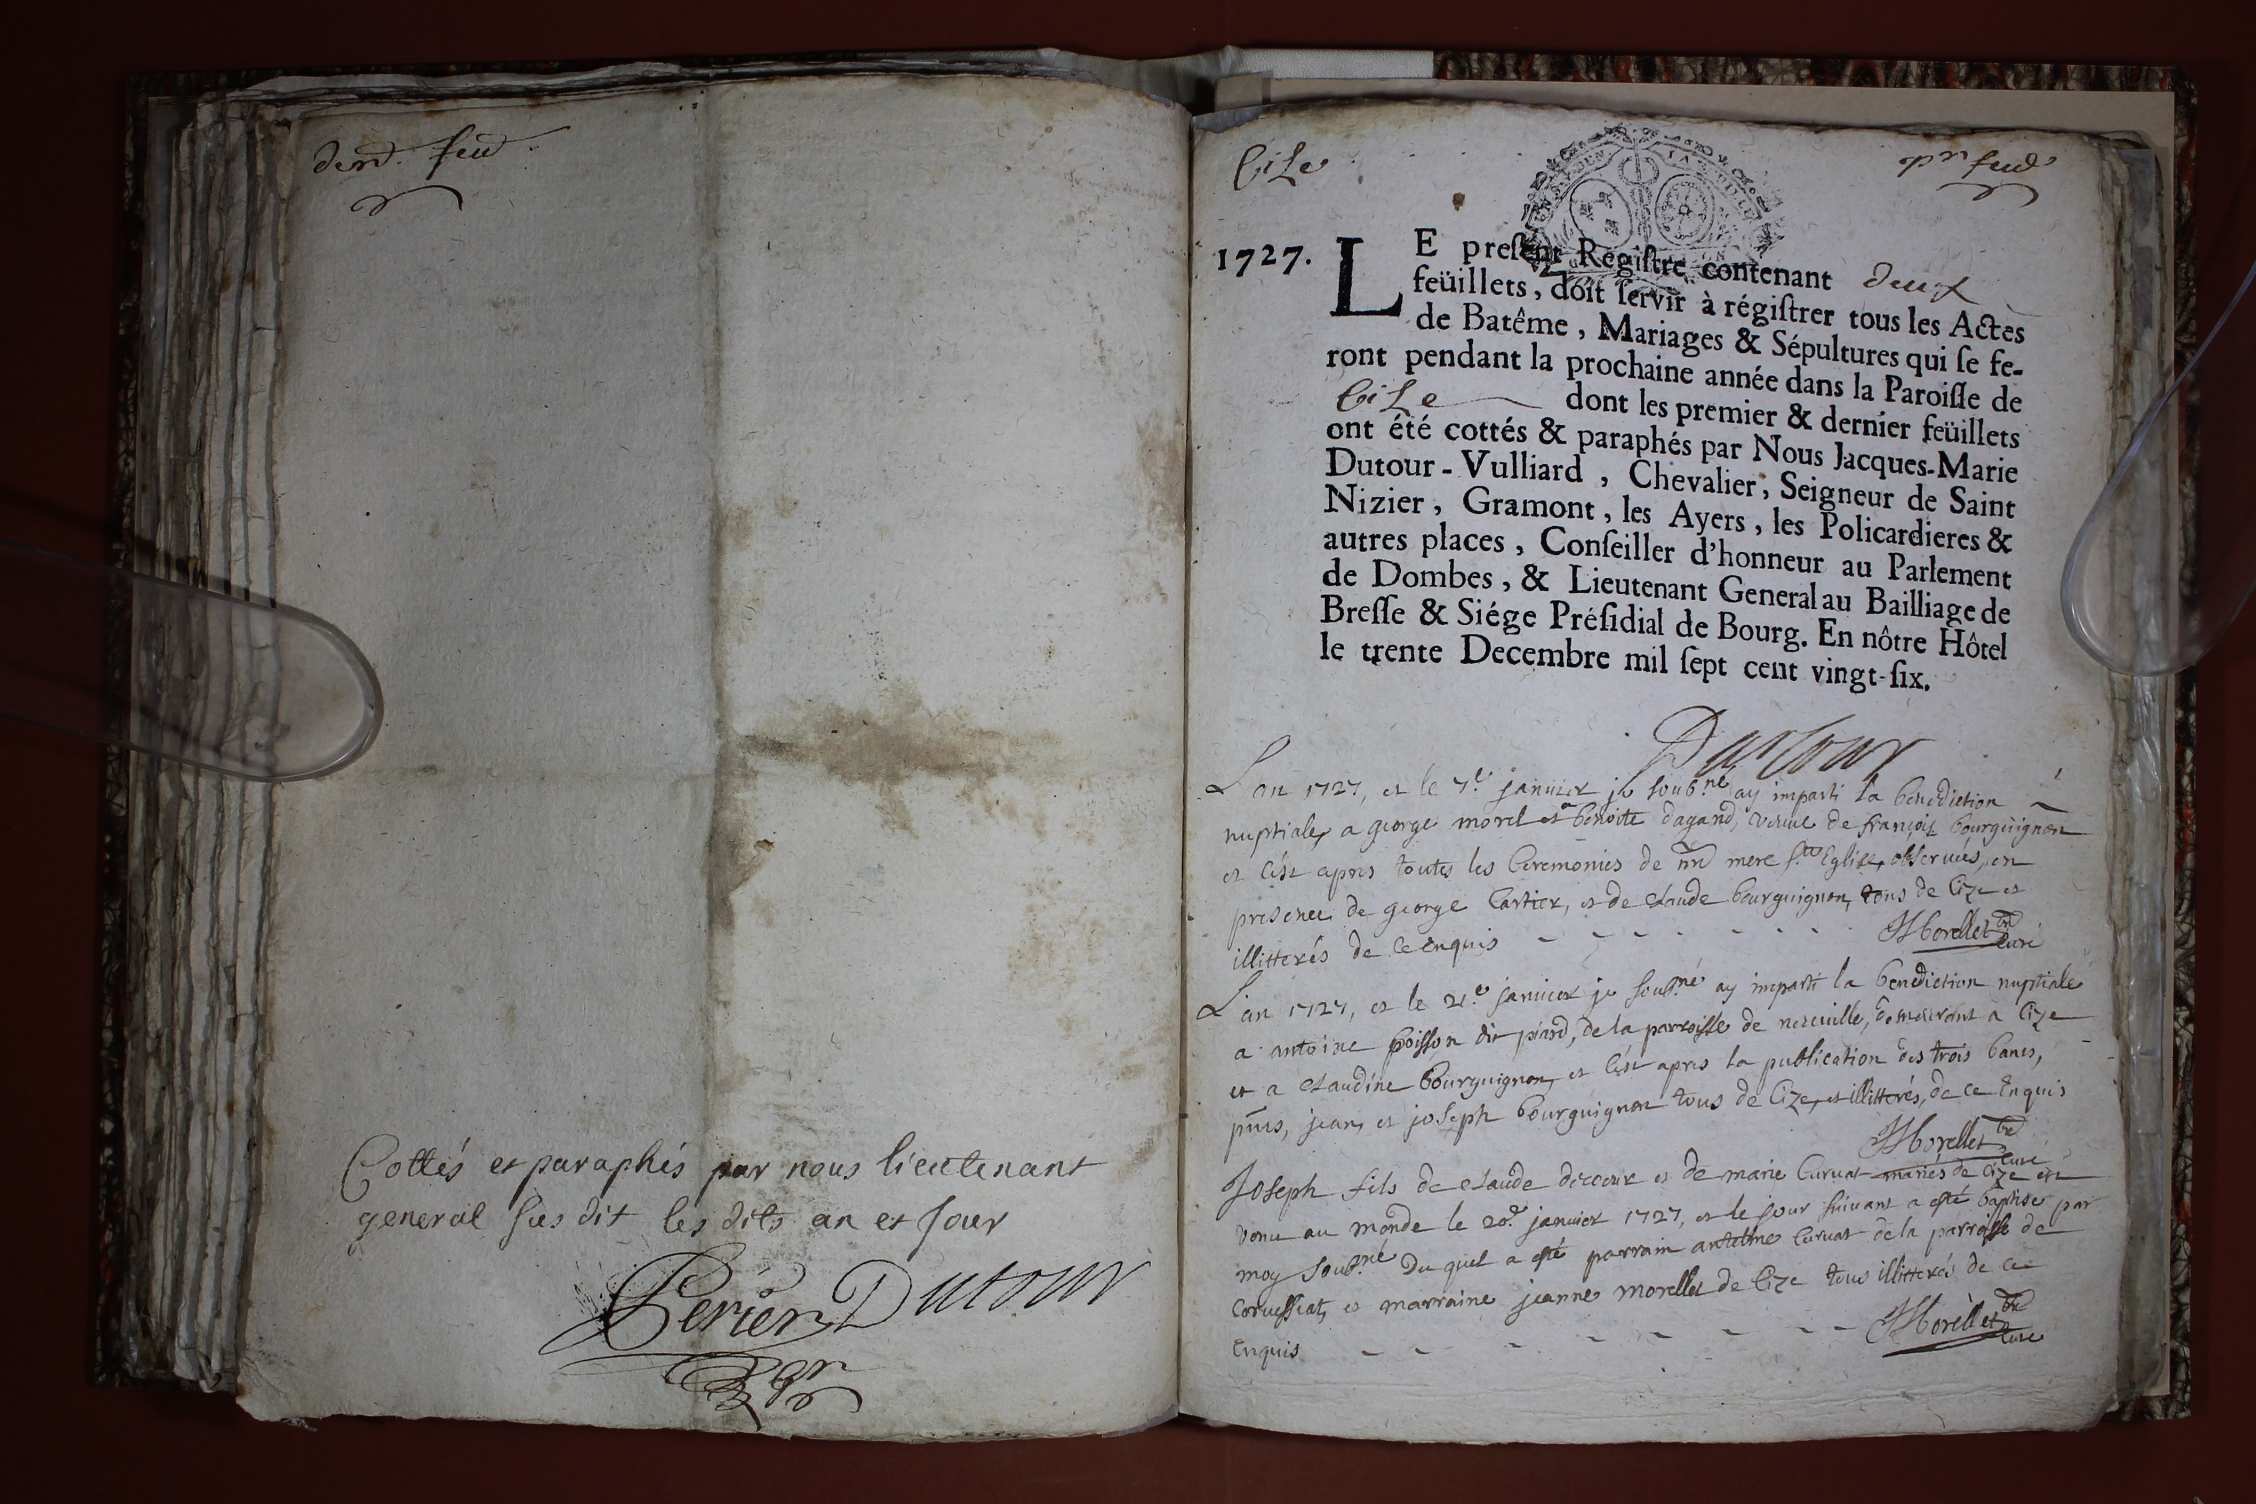 dern. feu.
Cottés et paraphés par nous lieutenant
general sus dit les dits an et jour
Perier Dutour
Cize
pr. feu.
1727.
LE preſent Regiſtre contenant deux
feüillets, doit ſervir à régiſtrer tous les Actes
de Batême, Mariages & Sépultures qui ſe fe-
ront pendant la prochaine année dans la Paroiſſe de
Cize dont les premier & dernier feüillets
ont été cottés & paraphés par Nous Jacques-Marie
Dutour-Vulliard, Chevalier, Seigneur de Saint
Nizier, Gramont, les Ayers, les Policardieres &
autres places, Conſeiller d'honneur au Parlement
de Dombes, & Lieutenant General au Bailliage de
Breſſe & Siége Préſidial de Bourg. En nôtre Hôtel
le trente Decembre mil ſept cent vingt-ſix.
Dutour
L'an 1727, et le 7e janvier je soubné ay imparti la benediction
nuptiale, a george morel et a benoite dagand, veuve de françois bourguignon
et c'est apres toutes les ceremonies de nre mere ste Eglise observées, en
presence de george Cartier, et de claude bourguignon, tous de Cize et
illitterés de ce enquis
Morellet curé
L'an 1727, et le 21e janvier je soubné ay imparti la benediction nuptiale
a antoine poisson dit piard, de la parroisse de neuville, demeurant a Cize
et a claudine bourguignon, et c'est apres la publication des trois bancs,
pnts, jean, et joseph bourguignon tous de Cize, et illitterés, de ce Enquis
Morellet curé
Joseph fils de claude decoeur et de marie Curvat mariés de Cize est
venu au monde le 20e janvier 1727, et le jour suivant a esté baptisé par
moy soubné du quel a esté parrain antelme Curvat de la parroisse de
Corveyssiat, et marraine jeanne morellet de Cize tous illitterés de ce
Enquis
Morellet curé